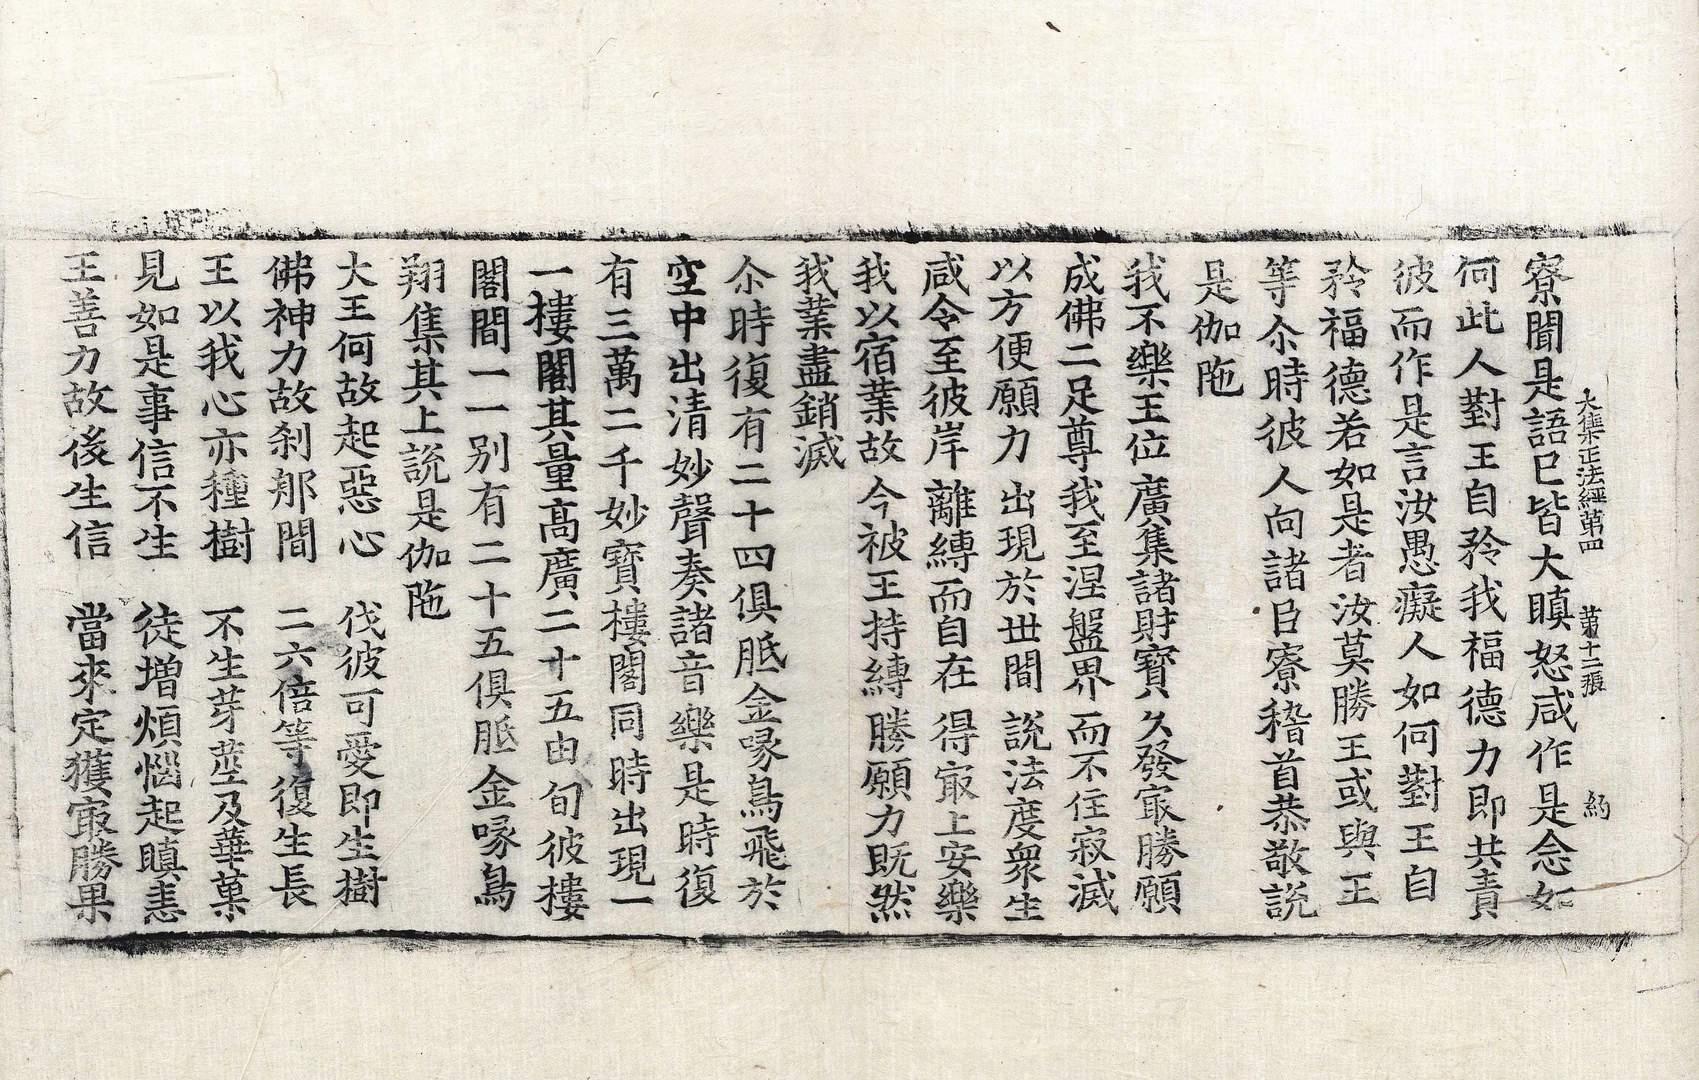 大集正法經第四　第十二張　約
寮聞是語已皆大瞋怒咸作是念如
何此人對王自矜我福德力即共責
彼而作是言汝愚癡人如何對王自
矜福德若如是者汝莫勝王或與王
等尒時彼人向諸臣寮稽首恭敬說
是伽陁
我不樂王位　廣集諸財寶　久發㝡勝願
成佛二足尊　我至涅盤界　而不住寂滅
以方便願力　出現於世間　說法度衆生
咸令至彼岸　離縛而自在　得㝡上安樂
我以宿業故　今被王持縛　勝願力既然
我業盡銷滅
尒時復有二十四俱胝金喙鳥飛於
空中出清妙聲奏諸音樂是時復
有三萬二千妙寶樓閣同時出現一
一樓閣其量高廣二十五由旬彼樓
閣間一一別有二十五俱胝金喙鳥
翔集其上說是伽陁
大王何故起惡心　伐彼可愛即生樹
佛神力故刹那間　二六倍等復生長
王以我心亦種樹　不生芽莖及華菓
見如是事信不生　徒增煩惱起瞋恚
王善力故後生信　當來定獲㝡勝果